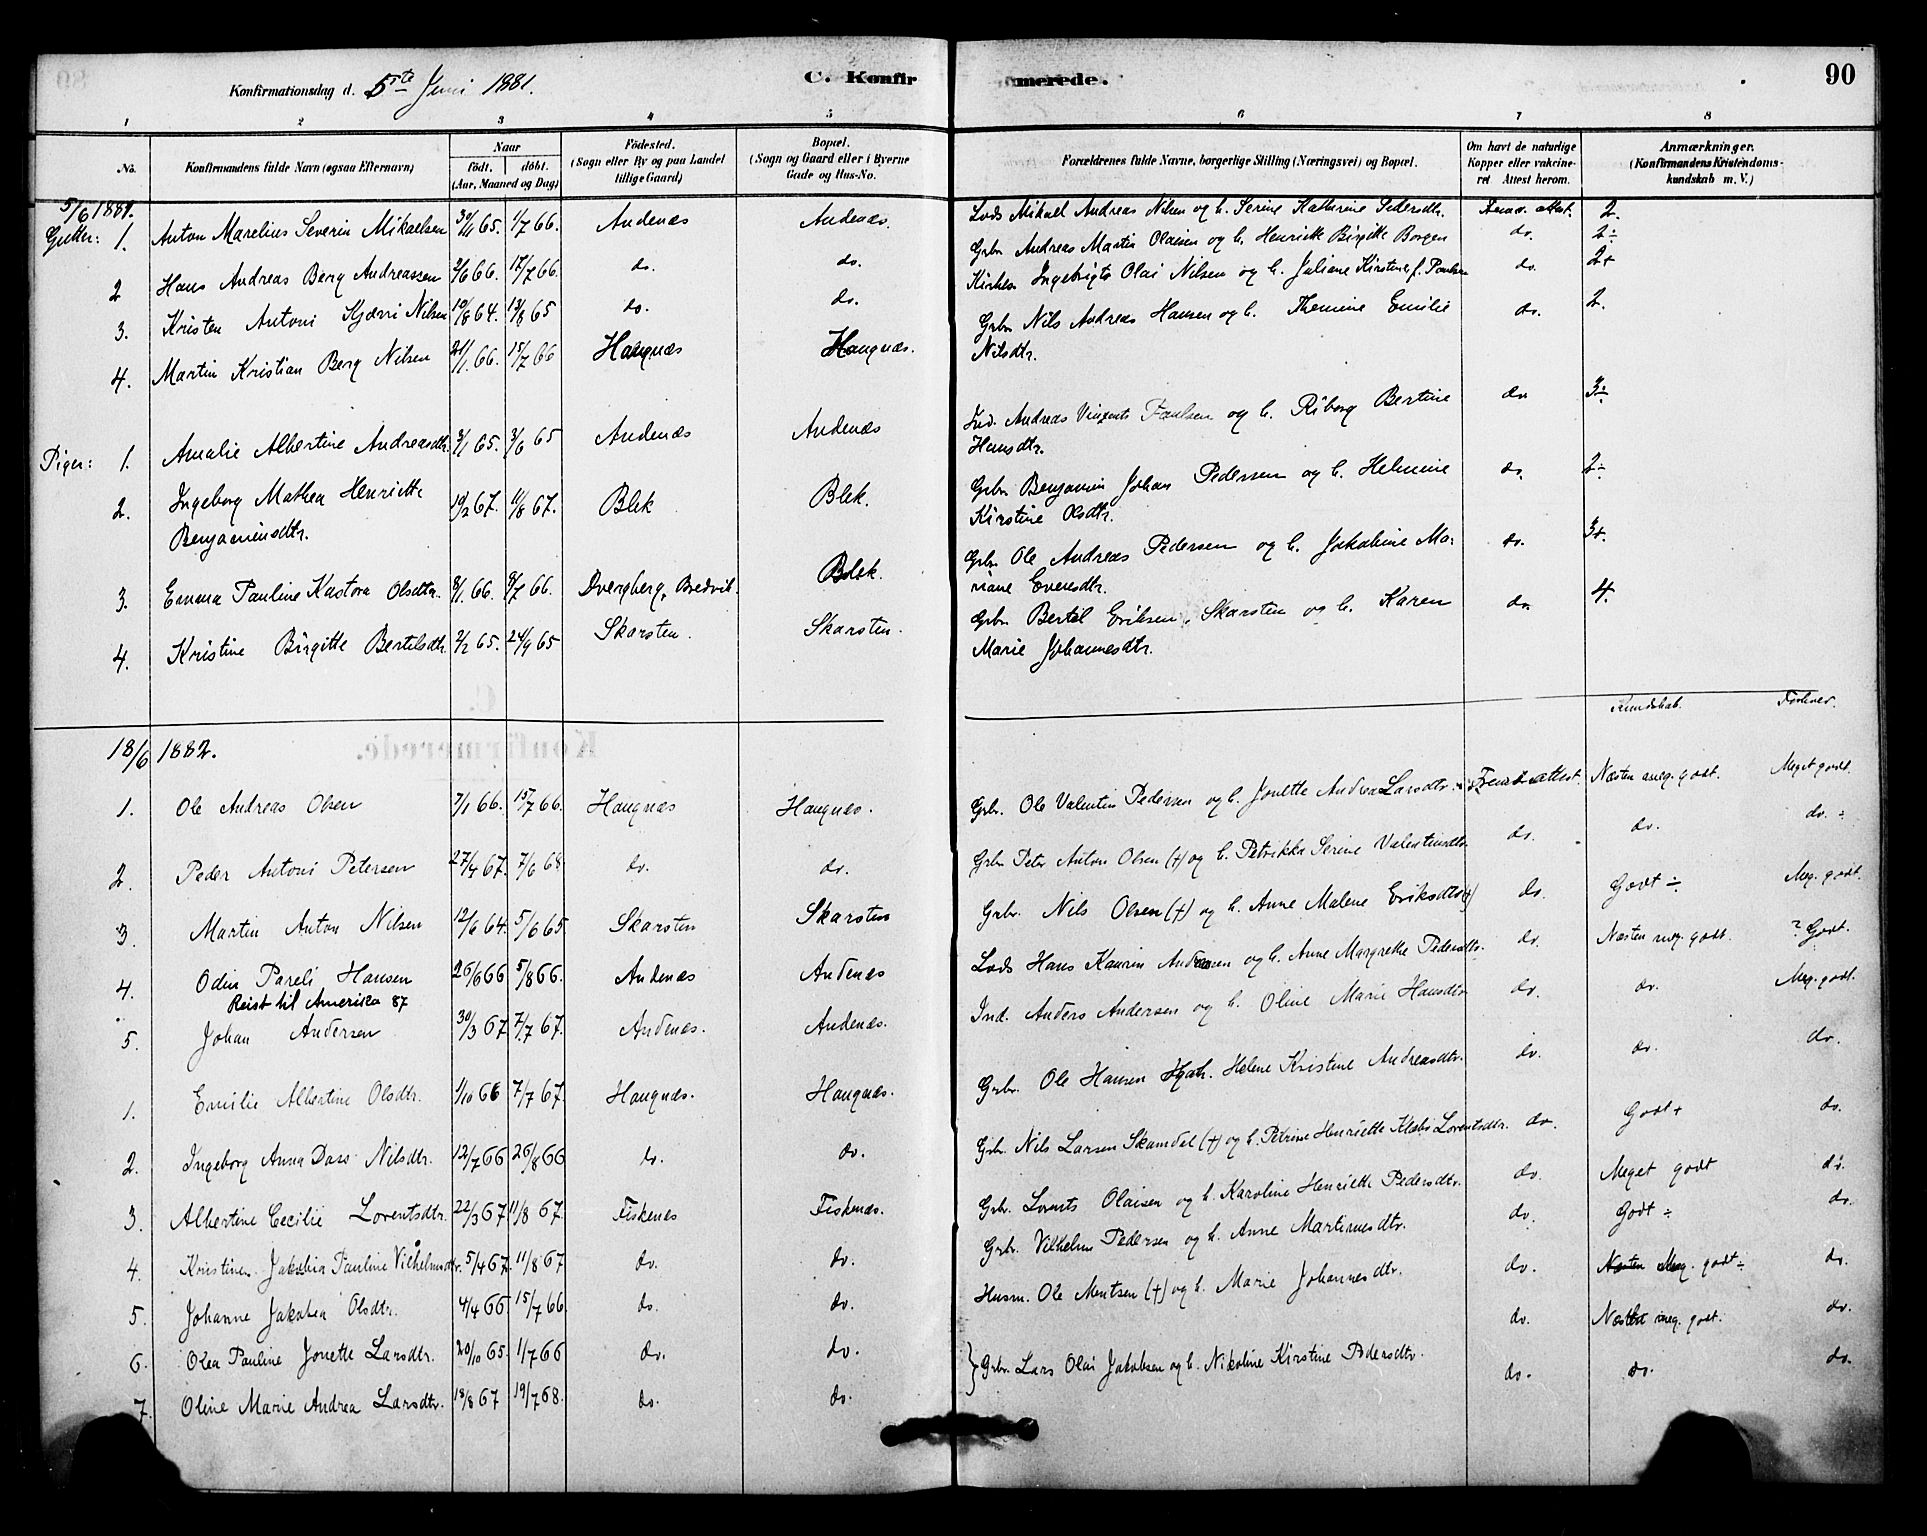 Konfirmationsdag d. 5te Juni 1881.
C. Konfirmerede.
90
1 2 3 4 5 6 7 8
No.
Konfirmandens fulde Navn (ogsaa Efternavn)
Naar
født. døbt.
(Aar, Maaned og Dag)
Fødested.
(Sogn eller By og paa Landet
tillige Gaard)
Bopæl.
(Sogn og Gaard eller i Byerne
Gade og Hus-No.
Forældrenes fulde Navne, borgerlige Stilling (Næringsvei) og Bopæl.
Om havt de naturlige
Kopper eller vakcineret
Attest herom.
Anmærkninger.
(Konfirmandens Kristendomskundskab
m. V.)
5/6 1881.
Gutter: 1. Anton Marelius Severin Mikaelsen 30/11 65. 1/7 66. Andenæs Andenæs. Lods Mikael Andreas Nilsen og h. Serine Kathrine Pedersdtr. attest. 2.
2 Hans Andreas Berg Andreassen 2/6 66. 17/7 66. do. do. Grbr. Andreas Martin Olaisen og h. Henrikke Birgitte Borgen do. 2÷
3. Kristen Antoni Nilsen 10/8 64. 13/8 65 do. do. Ingebrigt Olai Nilsen og h. Juliane Kirstine f. Paulsen do. 2+
4. Martin Kristian Berg Nilsen 21/1 66. 15/7 66 Haugnæs Haugnæs. Grbr Nils Andreas Hansen og h. Emilie
Nilsdtr. do. 2.
Piger: 1. Amalie Albertine Andreasdtr. 3/1 65. 3/6 65 Andenæs Andenæs Ind. Andreas Paulsen og h. Riborg Bertine
Hansdtr. do 3÷
2. Ingeborg Mathea Henriette
Benjaminsdtr. 10/2 67. 11/8 67. Blek Blek. Grbr Benjamin Johan Pedersen og h. Helmine
Kirstine Olsdtr. do 2÷
3. Emma Pauline Kastora Olsdtr. 8/1 66. 8/7 66. Dverberg, Bredvik. Blek. Grbr Ole Andreas Pedersen og h. Jakobine Mariane
Evensdtr. do. 3+.
4. Kristine Birgitte Bertelsdtr. 2/2 65. 24/9 65 Skarsten. Skarsten. Grbr. Bertel Eriksen, Skarsten og h. Karen
Marie Johannesdtr. do. 4.
Kundskab. Forhver.
18/6 1882.
1. Ole Andreas Olsen 7/1 66. 15/7 66. Haugnæs Haugnæs. Grbr. Ole Valentin Pedersen og h. Jonette Andrea Larsdtr. attest. Næsten meg. godt. Meget godt.
2. Peder Antoni Petersen 27/4 67. 7/6 68 do. do. Grbr Peter Anton Olsen (+) og h. Petrikka Serine Valentinsdtr do. do. do. ÷
3. Martin Anton Nilsen 12/6 64. 5/6 65 Skarsten Skarsten Grbr. Nils Olsen (+) og h. Anne Malene Eriksdtr (+) do. Godt ÷ Meg. godt.
4. Odin Pareli Hansen 26/6 66 5/8 66. Andenæs Andenæs Lods Hans Kaurin Andersen og h. Anne Margrethe Pedersdtr. do. Næsten meg. godt. ? Godt.
Reist til Amerika 87
5. Johan Andersen 30/3 67 7/7 67. Andenæs. Andenæs. Ind. Anders Andersen og h. Oline Marie Hansdtr do. do. Meg. godt.
1. Emilie Albertine Olsdtr. 1/10 66 7/7 67. Haugnæs. Haugnæs. Grbr. Ole Hansen og h. Helene Kristine Andreasdtr. do. do. do.
2. Ingeborg Anna Dass Nilsdtr. 12/7 66 26/8 66 do. do. Grbr. Nils Larsen Skamdal (+) og h. Petrine Henriette Klæbo Lorentsdtr. do. Godt + do.
3. Albertine Cecilie Lorentsdtr. 22/3 67 11/8 67. Fiskenes Fiskenæs. Grbr. Lorents Olaisen og h. Karoline Henriette Pedersdtr. do. Meget godt do.
4. Kristine Jakobia Pauline Vilhelmsdtr. 5/4 67. 11/8 67 do. do. Grbr. Vilhelm Pedersen og h. Anne Martinusdtr. do. Godt ÷ do.
5. Johanne Jakobea Olsdtr. 4/4 66 15/7 66 do. do. Husm. Ole Mentsen (+) og h. Marie Johannesdtr. do. Næsten Meg. godt ÷ do.
6. Olea Pauline Jonette Larsdtr. 20/10 65. 1/7 66 do. do. } Grbr. Lars Olai Jakobsen og h. Nikoline Kirstine Pedersdtr. do. Næsten meg. godt. do.
7. Oline Marie Andrea Larsdtr. 18/8 67 19/7 68. do. do. do. do. do.